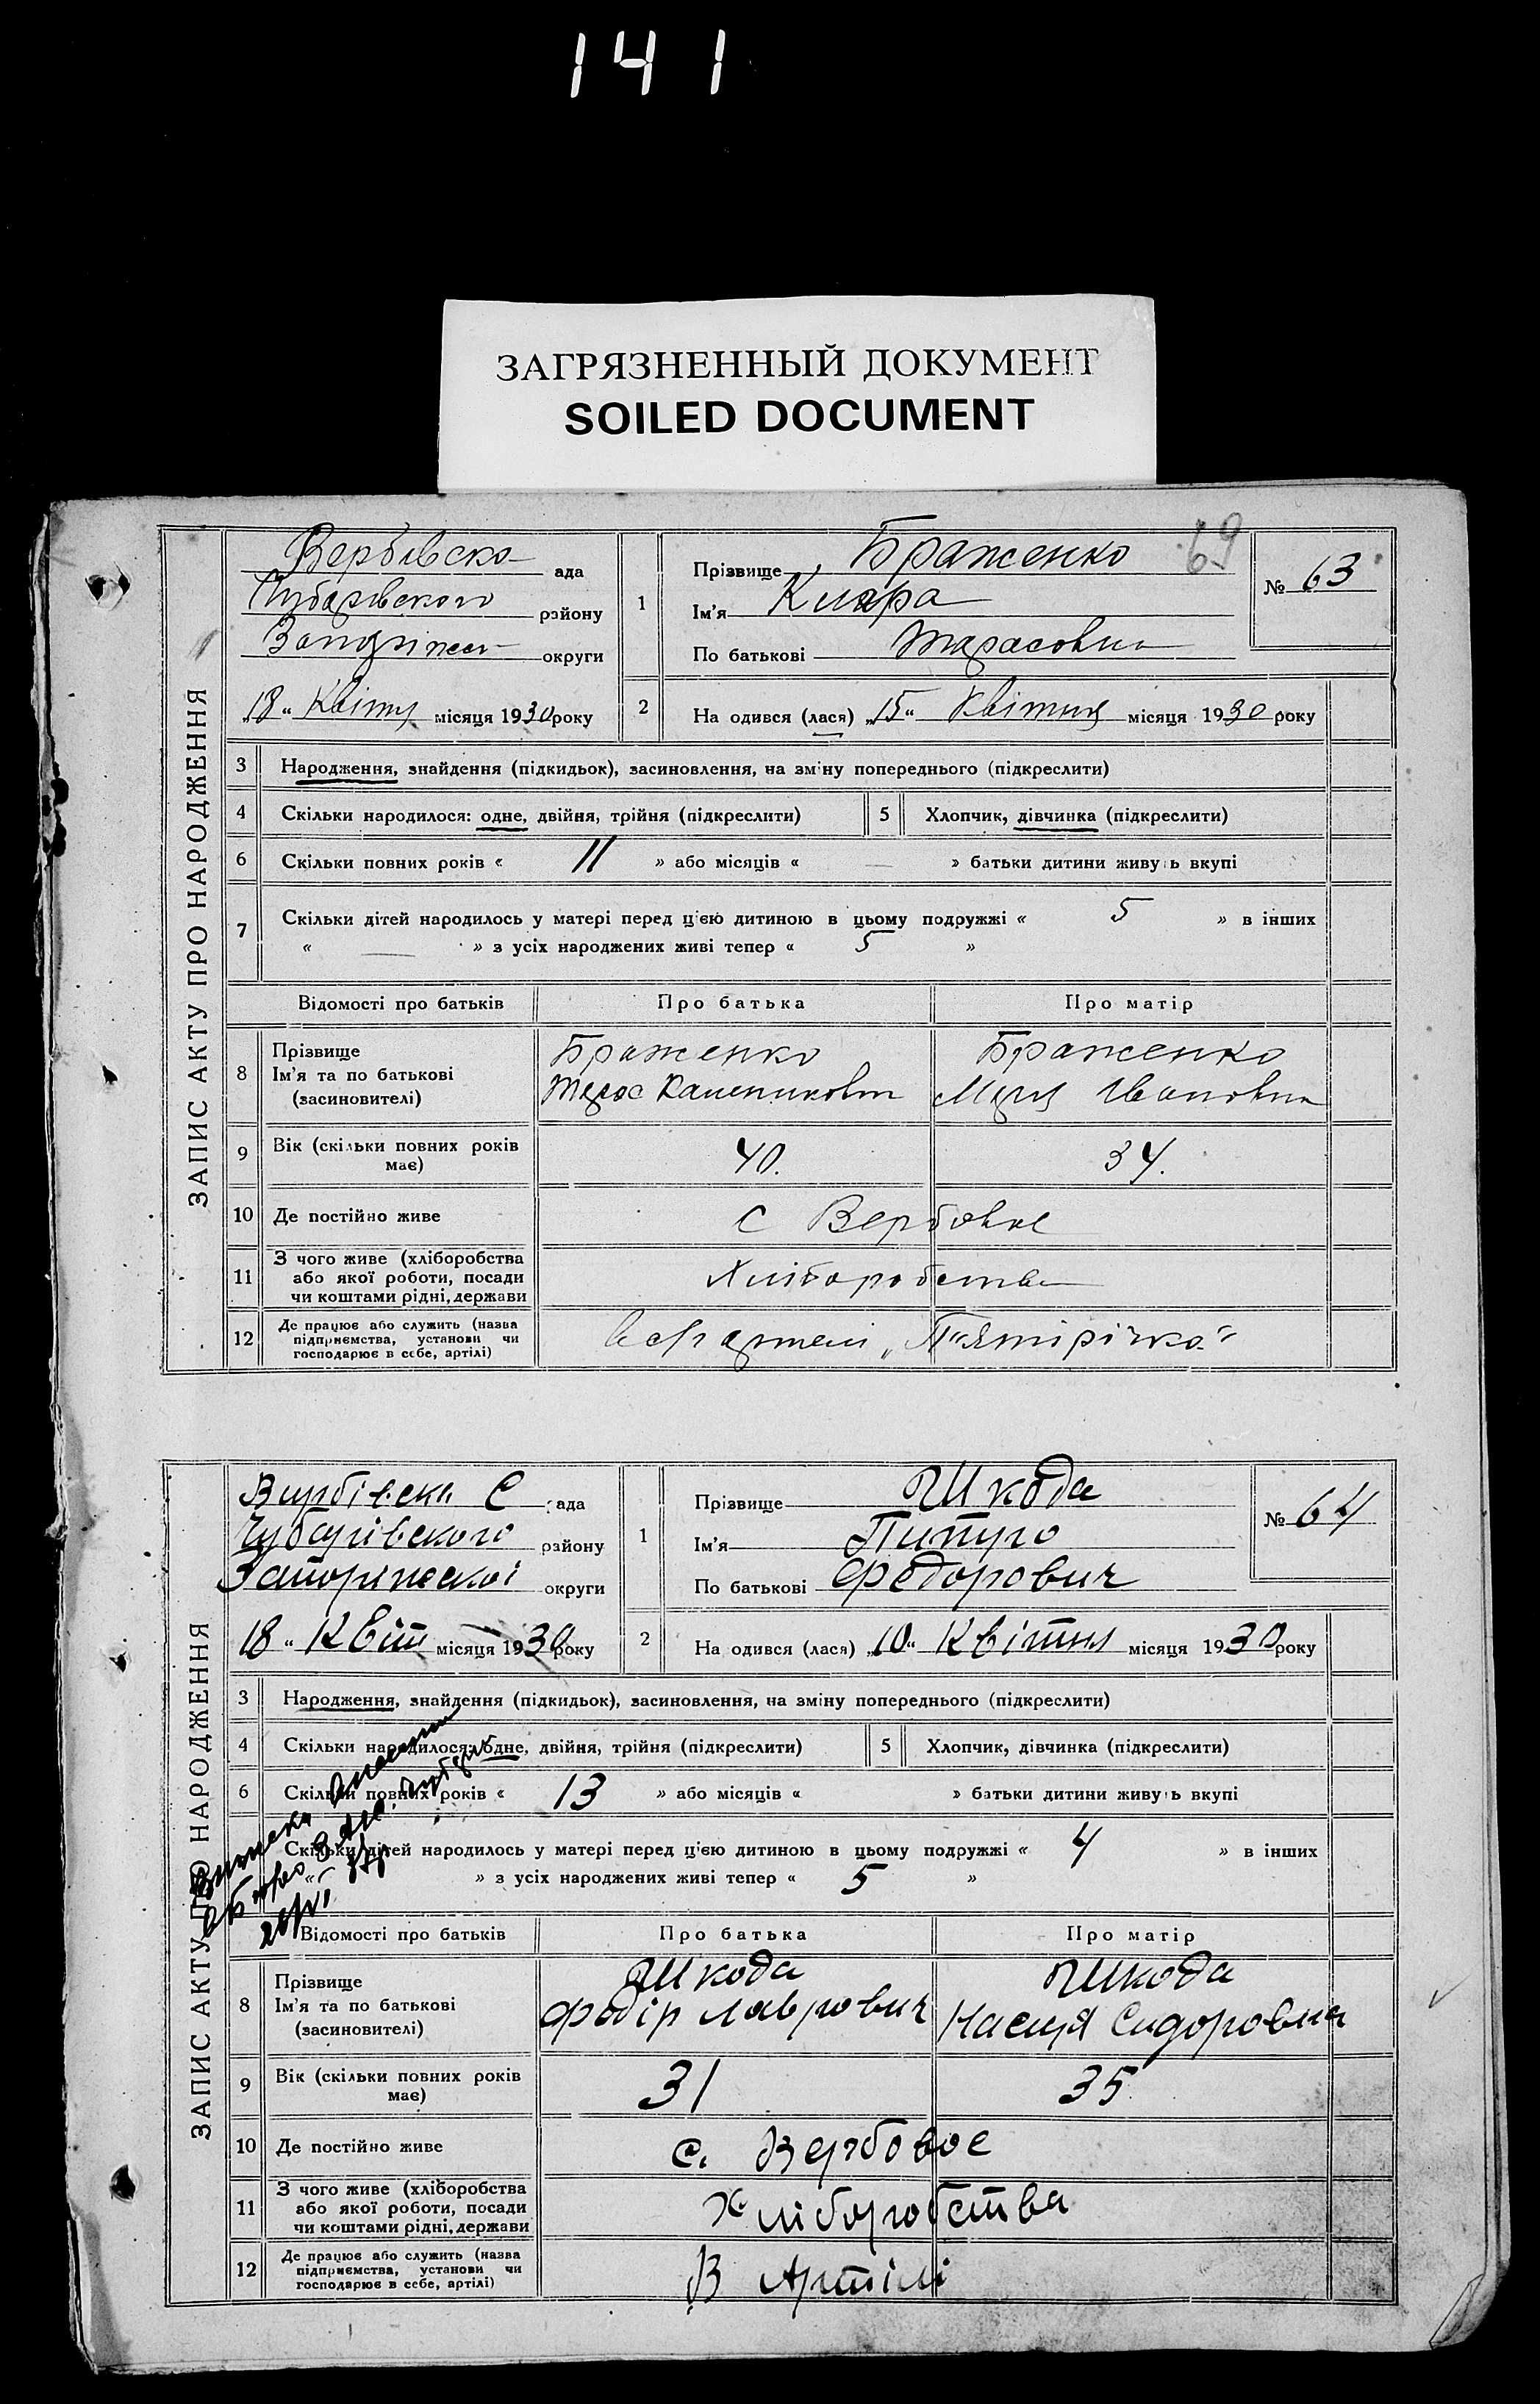 141
ЗАГРЯЗНЕННЫЙ ДОКУМЕНТ
SOILED DOCUMENT
69
ЗАПИС АКТУ ПРО НАРОДЖЕННЯ
Вербівска ада
Чубарівского району
округи
„18“ Квітня місяця 1930 року
1
Прізвище Браженко
Ім'я
По батькові Тарасовна
№ 63
2
На одився (лася) „15“ Квітня місяця 1930 року
3 Народження, знайдення (підкидьок), засиновлення, на зміну попереднього (підкреслити)
4 Скільки народилося: одне, двійня, трійня (підкреслити)
5 Хлопчик, дівчинка (підкреслити)
6 Скільки повних років « 11 » або місяців « — » батьки дитини живуть вкупі
7 Скільки дітей народилось у матері перед цією дитиною в цьому подружжі « 5 » в інших
« — » з усіх народжених живі тепер « 5 »
Відомості про батьків Про батька Про матір
8 Прізвище
Ім'я та по батькові
(засиновителі)
Браженко
Тарас Каленикович
Браженко
Марія Івановна
9 Вік (скільки повних років
має)
40. 34.
10 Де постійно живе с Вербовке
11 З чого живе (хліборобства
або якої роботи, посади
чи коштами рідні, держави
Хліборобства
12 Де працює або служить (назва
підприємства, установи чи
господарює в себе, артілі)
артелі „П'ятирічка“
ЗАПИС АКТУ ПРО НАРОДЖЕННЯ
Вирбівска С ада
Чубарівского району
Запоріжскої округи
18 “ Квіт місяця 1930 року
1
Прізвище Шкода
Ім'я
По батькові Федорович
№ 64
2
На одився (лася) „10“ Квітня місяця 1930 року
3 Народження, знайдення (підкидьок), засиновлення, на зміну попереднього (підкреслити)
4 Скільки народилося: одне, двійня, трійня (підкреслити)
5 Хлопчик, дівчинка (підкреслити)
6 Скільки повних років « 13 » або місяців « » батьки дитини живуть вкупі
Скільки дітей народилось у матері перед цією дитиною в цьому подружжі « 4 » в інших
« » з усіх народжених живі тепер « 5 »
Відомості про батьків Про батька Про матір
8 Прізвище
Ім'я та по батькові
(засиновителі)
Шкода
Федір Лаврович
Шкода
Настя Сидоровна
9 Вік (скільки повних років
має)
31 35
10 Де постійно живе с. Вербовое
11 З чого живе (хліборобства
або якої роботи, посади
чи коштами рідні, держави
Хліборобства
12 Де працює або служить (назва
підприємства, установи чи
господарює в себе, артілі)
В Артілі